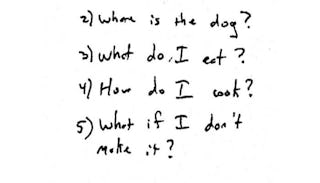 2) Where is the dog?
3) What do I eat?
4) How do I cook?
5) What if I don't
make it?